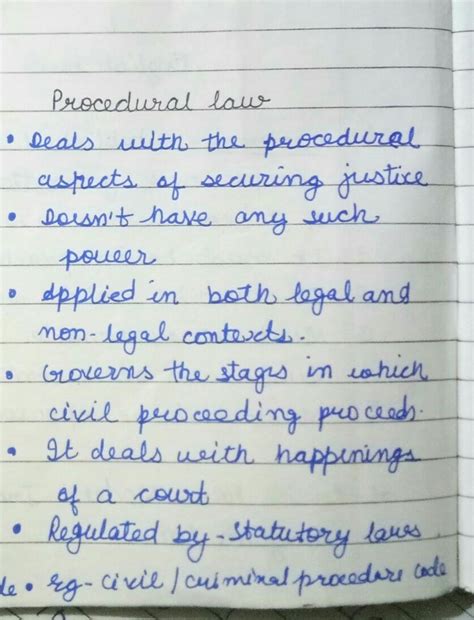 Procedural law
• Deals with the procedural
aspects of securing justice
• Doesn't have any such
power
• Applied in both legal and
non-legal contexts.
• Governs the stages in which
civil proceeding proceeds.
• It deals with happenings
of a court
• Regulated by - Statutory laws
• eg - civil / criminal procedure code